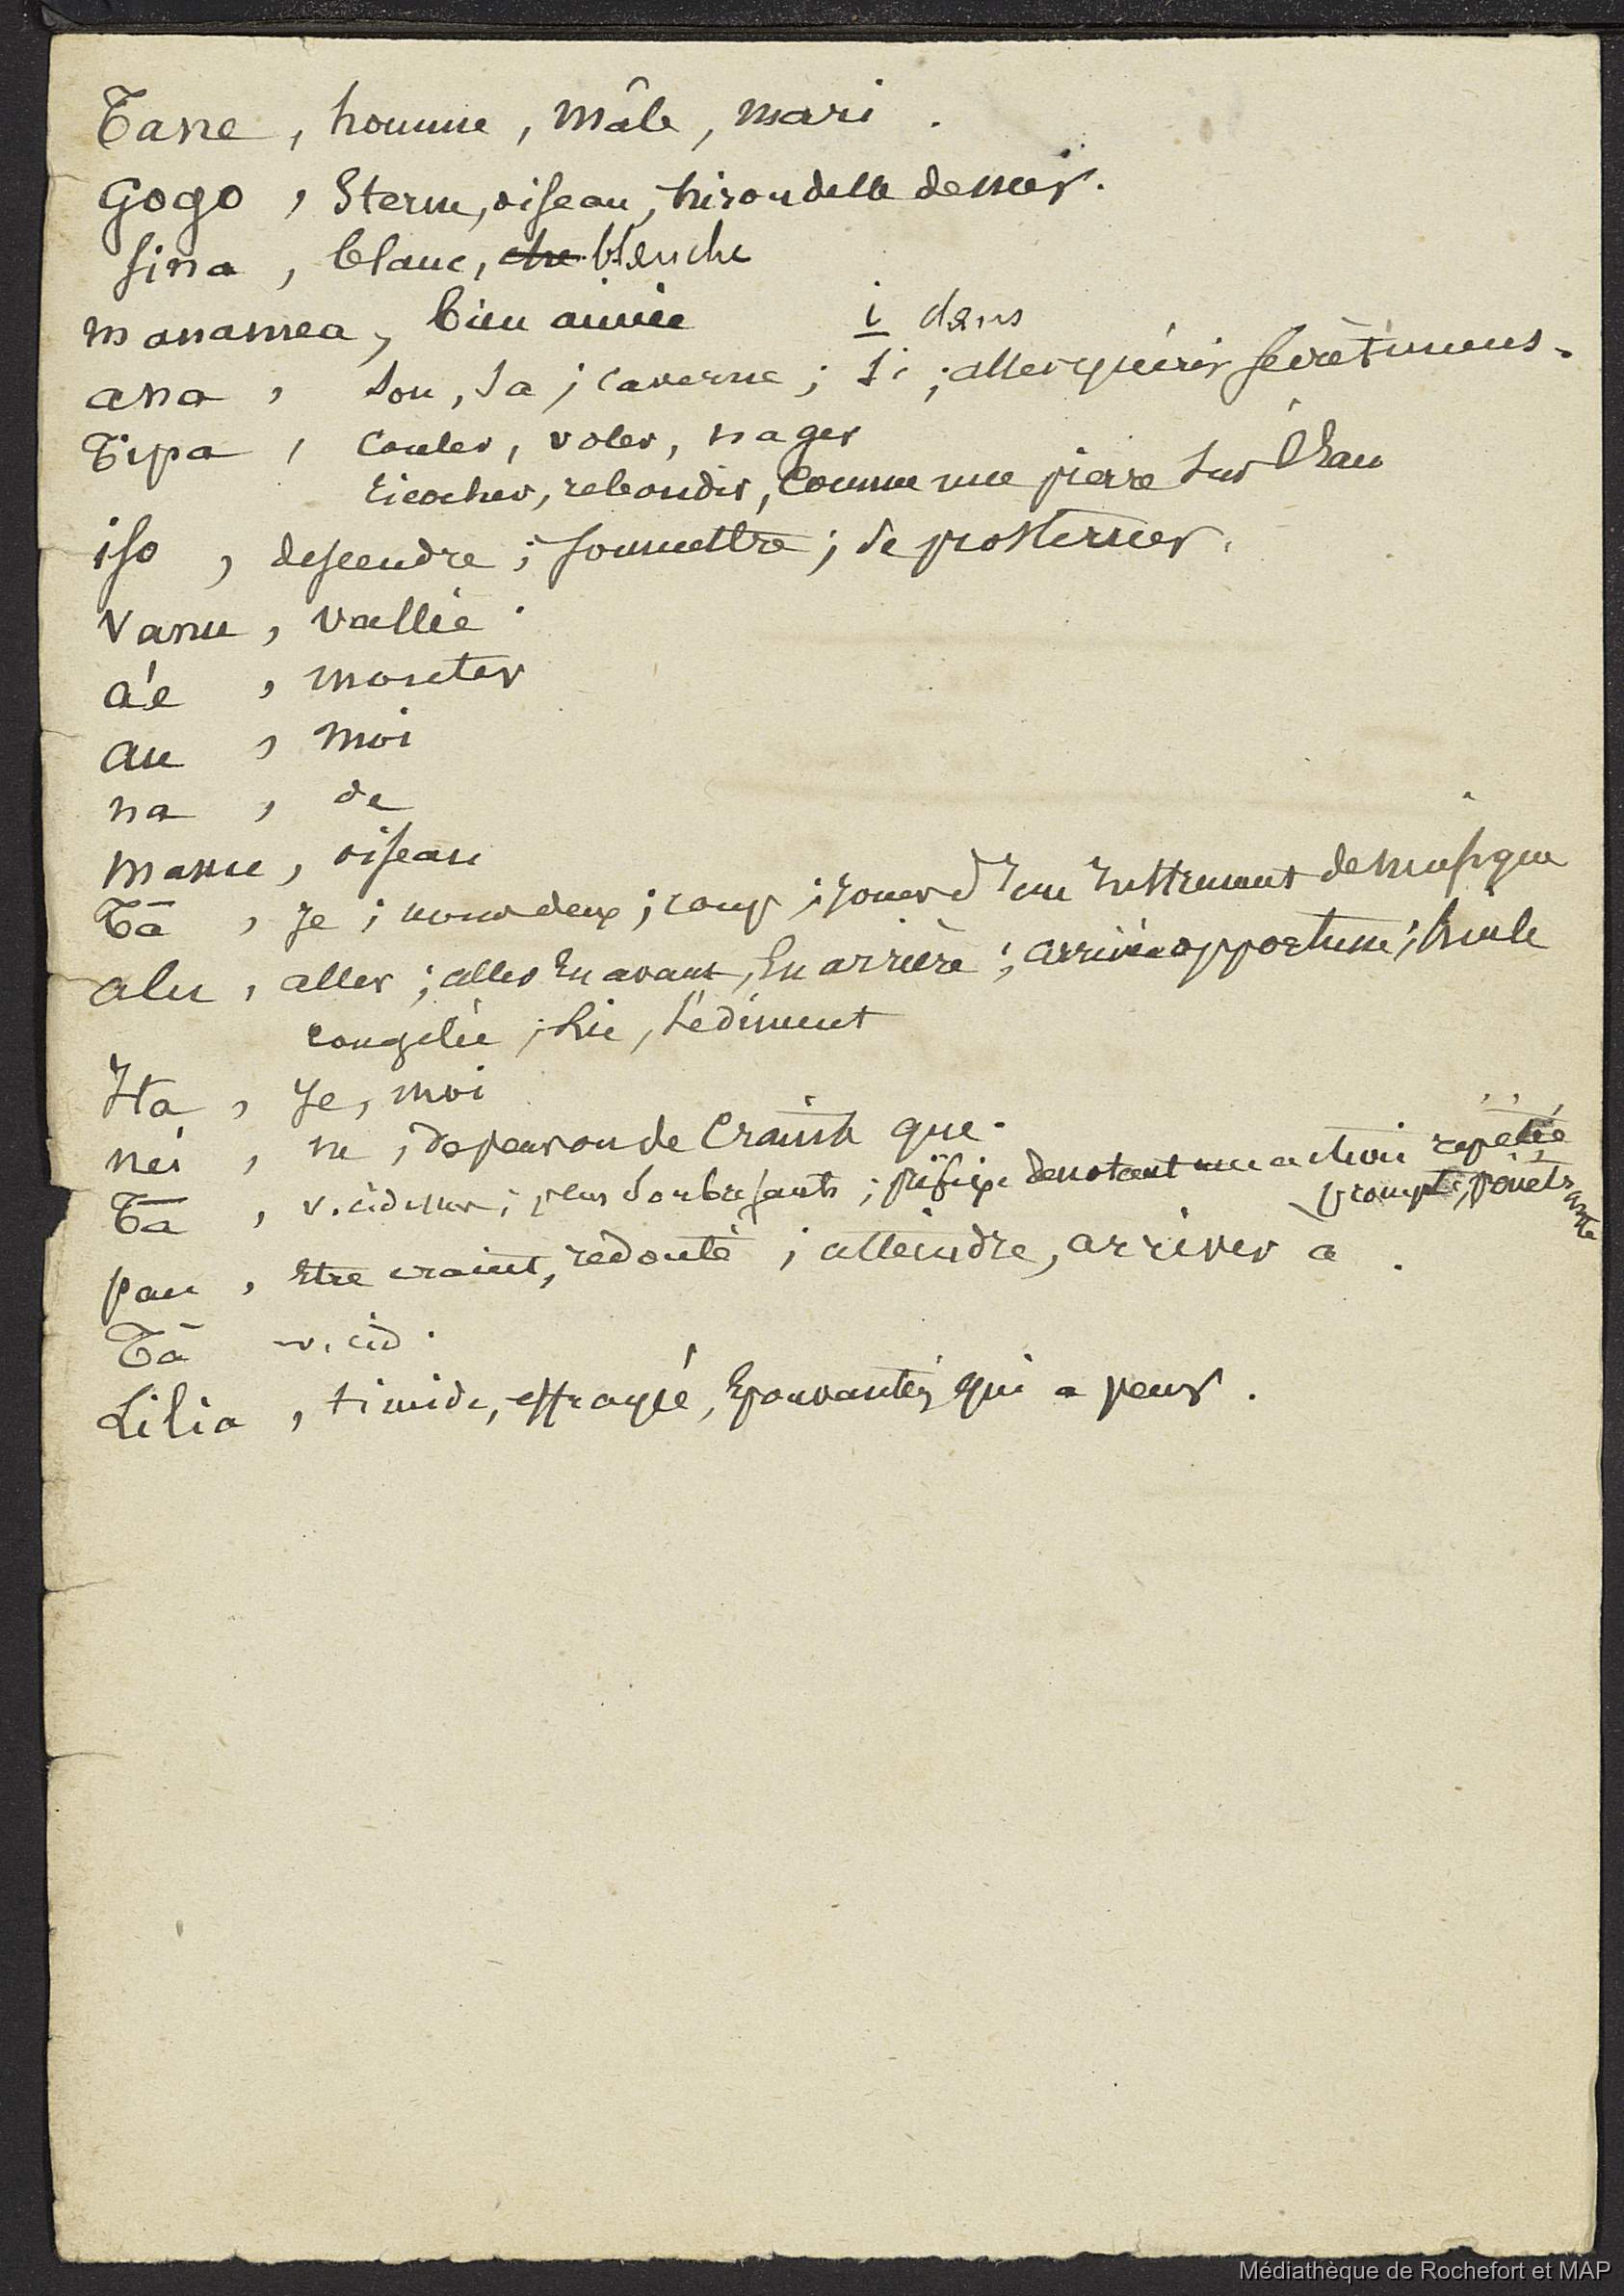 Tane, homme, mâle, mari.
Gogo, Sterne, oiseau, hirondelle de mer.
Sina, blanc, che blanche
manamea, bien aimée
i dans
ana, son, sa; caverne; si; aller quérir secrètement.
Tipa, couler, voler, nager
ricocher, rebondir, comme une pierre sur l'Eau
iso, descendre; soumettre; se prosterner.
Vanu, vallée.
a'e, monter
au, moi
na, de
manu, oiseau
Tā, Je; nous deux; coup; jouer d'un Instrument de musique
alu, aller; aller En avant, En arrière; arrivée opportune; huile
congelée; lie, sédiment
Ita, Je, moi
nei, ne; de peur ou de Crainte que.
Tā, v. ci dessus; préfixe denotant une action repétée
prompte, pénétrante
pau, Etre craint, redouté; atteindre, arriver a.
Tā v. cid.
Lilia, timide, effrayé, Epouvanté, qui a peur.
Médiathèque de Rochefort et MAP